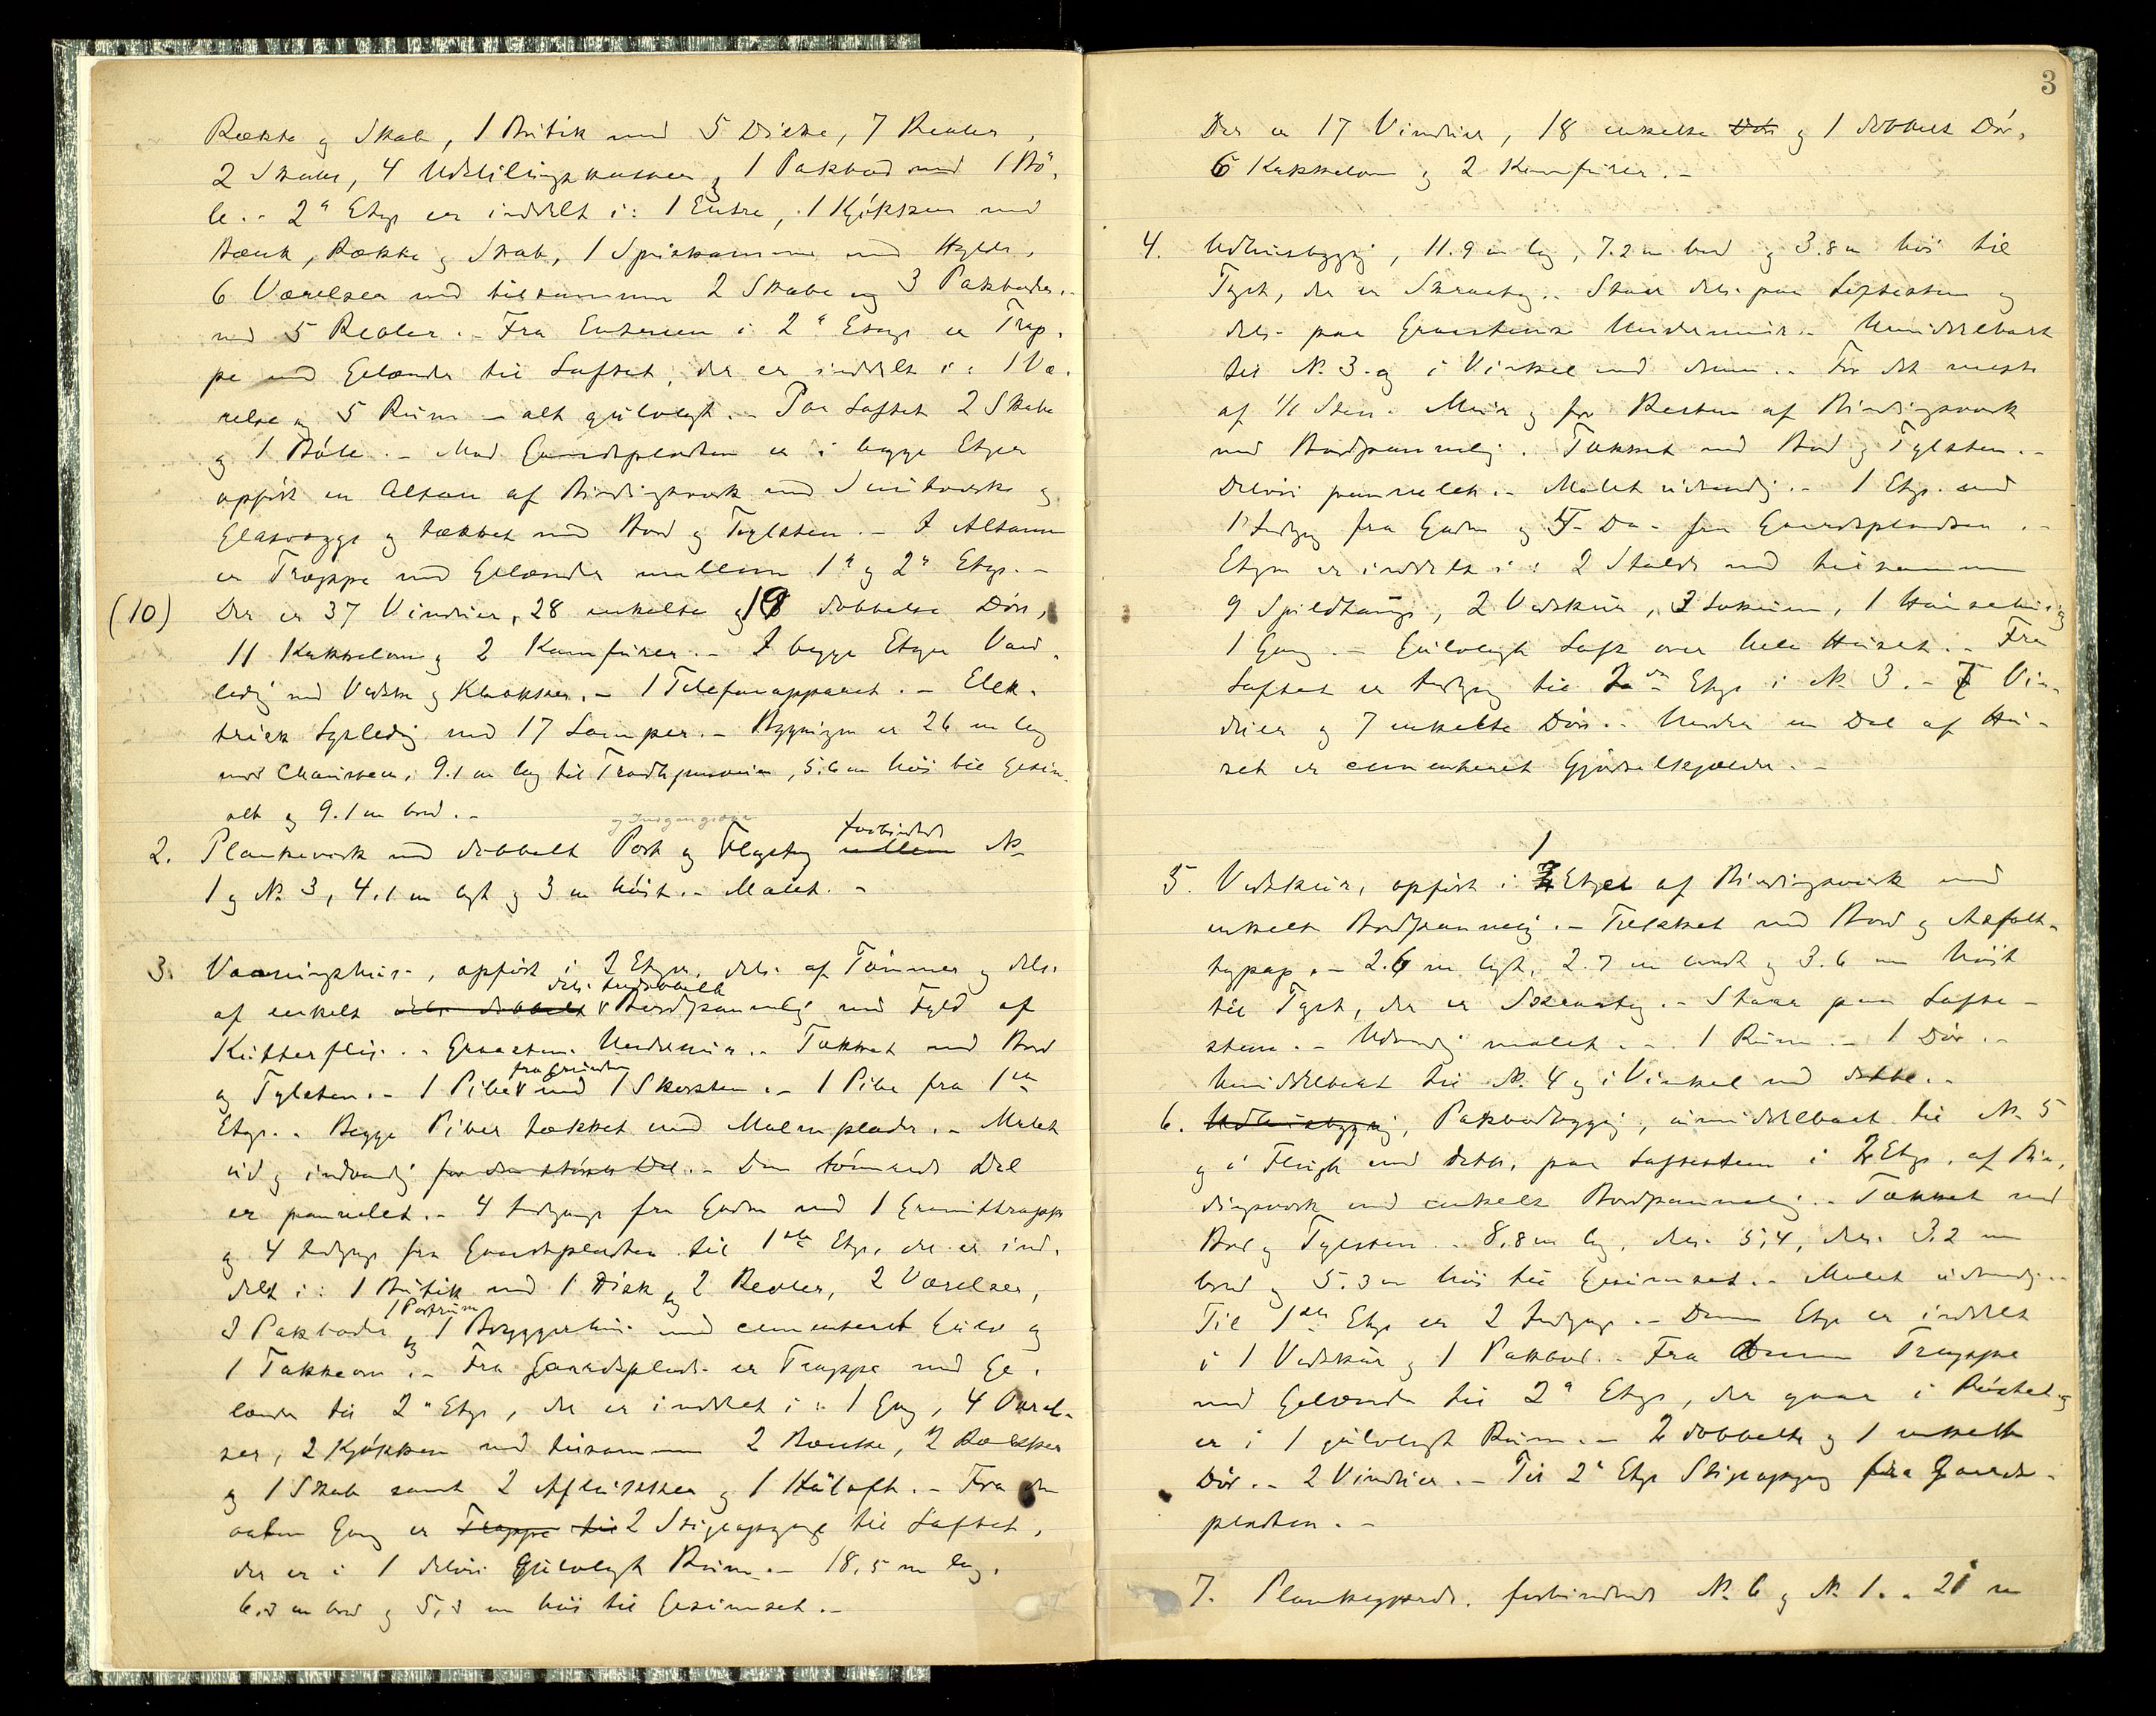 Række og Skab, 1 Butik med 5 Diske, 7 Reoler,
2 Skabe, 4 Udstillingskasser og 1 Pakbod med 1 Bö-
le.- 2n Etge er inddelt i: 1 Entre, 1 Kjökken med
Bænk, Række og Skab, 1 Spiskammer med Hylder,
6 Værelser med tilsammen 2 Skabe og 3 Pakboder
med 5 Reoler.- Fra Entreen i 2n Etage er Trap-
pe med Gelænder til Loftet, der er inddelt i: 1 Væ-
relse og 5 Rum - alt gulvlagt.- Paa Loftet 2 Skabe
og 1 Böle.- Mod Gaardspladsen er i begge Etger
opfört en Altan af Bindingsværk med Snitværk og
Glasvægge og tækket med Bord og Teglsten.- I Altanen
er Trappe med Gelænder mellem 1n og 2n Etge.-
(10) Der er 37 Vinduer, 28 enkelte og 19 dobbelte Döre,
11 Kakkelovn og 2 Komfurer.- I begge Etger Vand-
ledig med Vadske og Klokker.- 1 Telefonapparat.- Elek-
trisk Lysledig med 17 Lamper.- Bygnigen er 26 m lag
mod Chausseen, 9.1 m lag til Trondhjemsveien, 5.6 m höi til Gesim-
alt og 9.1 m bred.-
og Indgangsdör
2. Plankeværk med dobbelt Port og Flagstag mellem forbindende No
1 og No 3, 4.1 m lagt og 3 m höit.- Malet.-
3. Vaaningshus, opfört i 2 Etger, dels af Tömmer og dels
dels tredobbelt
af enkelt dels dobbelt Bordpannelig med Fyld af
Kutterflis.- Graastens Undermur.- Tækket med Bord
fra Grunden
og Teglsten.- 1 Pibe med 1 Skorsten.- 1 Pibe fra 1ste
Etge.- Begge Piber tækket med Malmplader.- Malet
ud og indvendig for den störste Del.- Den tömrede Del
er pannelet.- 4 Indgange fra Gaden med 1 Granittrappe
og 4 Indgange fra Gaardspladsen til 1ste Etge, der er ind-
delt i: 1 Butik med 1 Disk og 2 Reoler, 2 Værelser,
1 Portrum
3 Pakboder og 1 Bryggerhus med cementeret Gulv og
1 Takkeovn.- Fra Gaardsplads er Trappe med Ge-
lænder til 2n Etge, der er inddelt i: 1 Gang, 4 Værel-
ser, 2 Kjökken med tilsammen 2 Bænke, 2 Rækker
og 1 Skab samt 2 Aflukker og 1 Höloft.- Fra den
Gang er Trappe til 2 Stigeopgange til Loftet,
der er i 1 delvis Gulvlagt Rum.- 18.5 m lag,
6.3 m bred og 5.3 m höi til Gesimset.-
3
Der er 17 Vinduer, 18 enkelte Döre og 1 dobbelt Dör,
6 Kakkelovn og 2 Komfurer.-
4. Udhusbyggig, 11.9 m lag, 7.2 m bred og 3.8 m höi til
Taget, der er Skraatag.- Staar dels paa Löftesten og
dels paa Graastens Undermur.- Umiddelbart
til No 3 og i Vinkel med denne.- For det meste
af 1/1 Stens Mur og for Resten af Bindingsværk
med Bordpannelig. Tækket med Bord og Teglsten.-
Delvis pannelet.- Malet udvendig.- 1 Etge. med
1 Indgag fra Gaden og 5 Do fra Gaardspladsen.-
Etgen er inddelt i: 2 Stalde med tilsammen
9 Spildtaug, 2 Vedskur, 3 Lokum, 1 Hönsehus og
1 Gang.- Gulvlagt Loft over hele Huset.- Fra
Loftet er Indgag til 2den Etge i No 3.- 7 Vin-
duer og 7 enkelte Döre.- Under en Del af Hu-
set er cementeret Gjödselkjælder.-
1
5. Vedskur, opfört i 2 Etger af Bindingsværk med
enkelt Bordpannelig.- Tækket med Bord og Asfalt-
tagpap.- 2.6 m lagt, 2.7 m bredt og 3.6 m höit
til Taget, der er Skraatag.- Staar paa Löfte-
sten.- Udvendig malet.- 1 Rum.- 1 Dör.-
Umiddelbart til No 4 og i Vinkel med dette.-
6. Udhusbyggig, Pakbodbyggig, umiddelbart til No 5
og i Flugt med dette, paa Löftesten i 2 Etge. af Bin-
dingsværk med enkelt Bordpannelig.- Tækket med
Bord og Teglsten.- 8,8 m lag, dels 5,4, dels 3.2 m
bred og 5.3 m höi til Gesimset.- Malet udvendig.-
Til 1ste Etge er 2 Indgage.- Denne Etge er inddelt
i 1 Vedskur og 1 Pakbod.- Fra denne Trappe
med Gelænder til 2n Etge, der gaar i Röstet og
er i 1 gulvlagt Rum.- 2 dobbelte og 1 enkelt
Dör.- 2 Vinduer.- Til 2n Etge Stigeopgag fra Gaards-
pladsen.-
7. Plankegjærde, forbindende No 6 og No 1.- 21 m